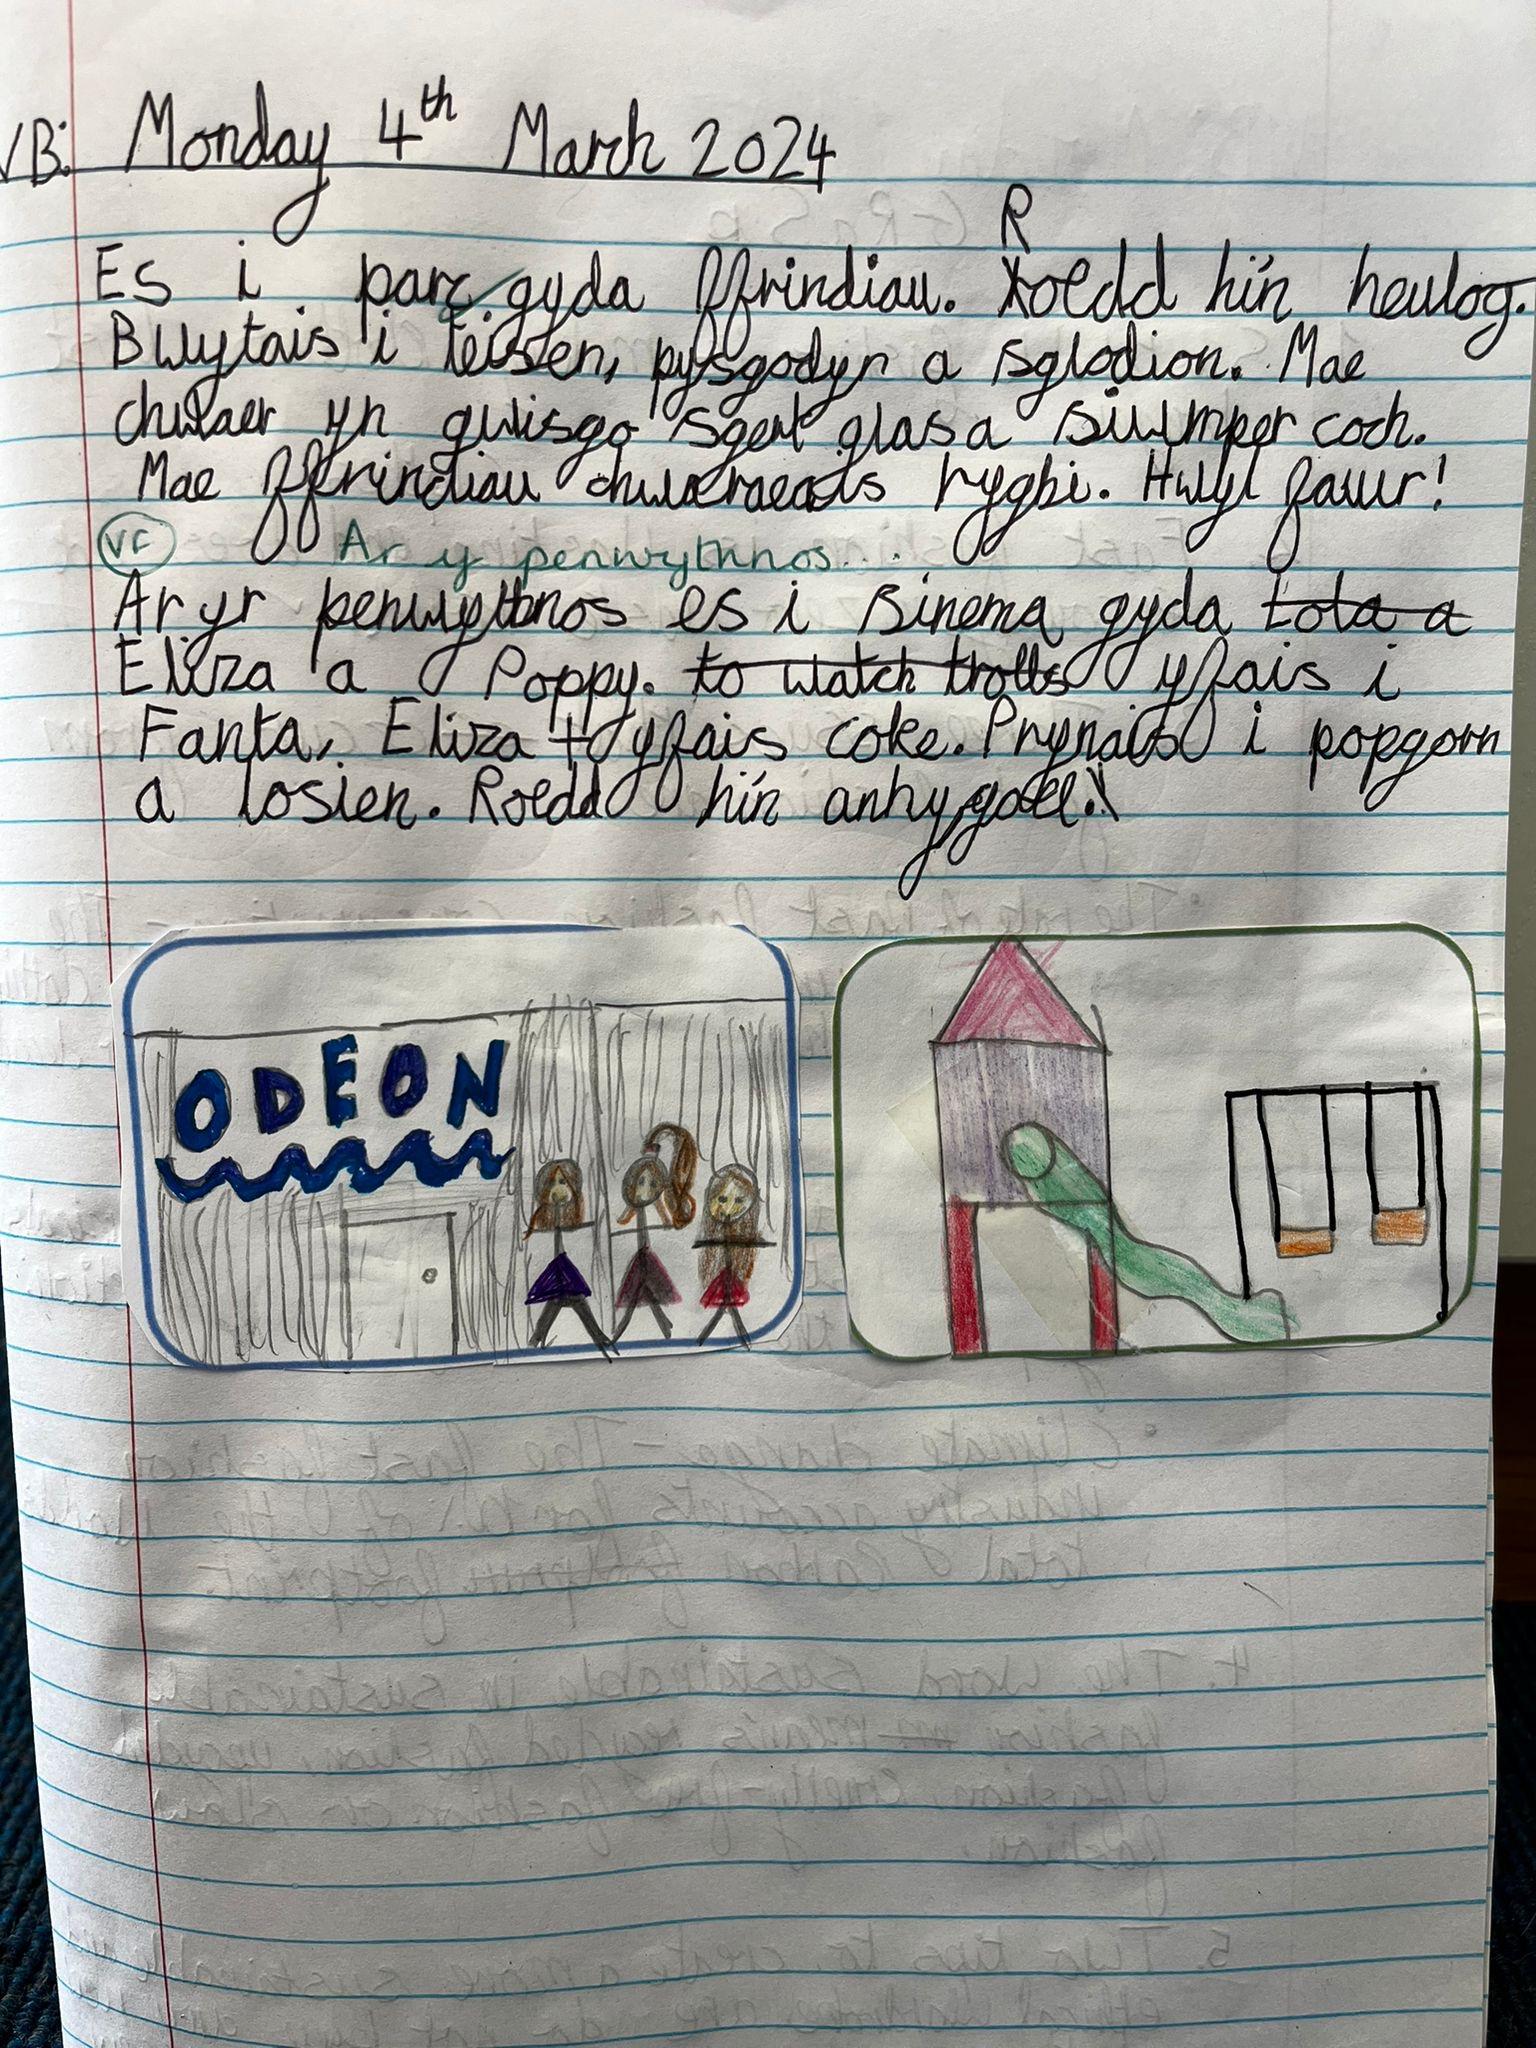 VB: Monday 4th March 2024
R
Es i parc gyda ffrindiau. Roedd hi'n heulog.
Bwytais i teisen, pysgodyn a sglodion. Mae
chwaer yn gwisgo sgert glas a siwmper coch.
Mae ffrindiau chwaraeais rygbi. Hwyl fawr!
VF Ar y penwythnos...
Ar yr penwythnos es i sinema gyda tota a
Eliza a Poppy. to watch trolls yfais i
Fanta, Eliza yfais coke. Prynais i popgorn
a losien. Roedd hi'n anhygoel.
ODEON